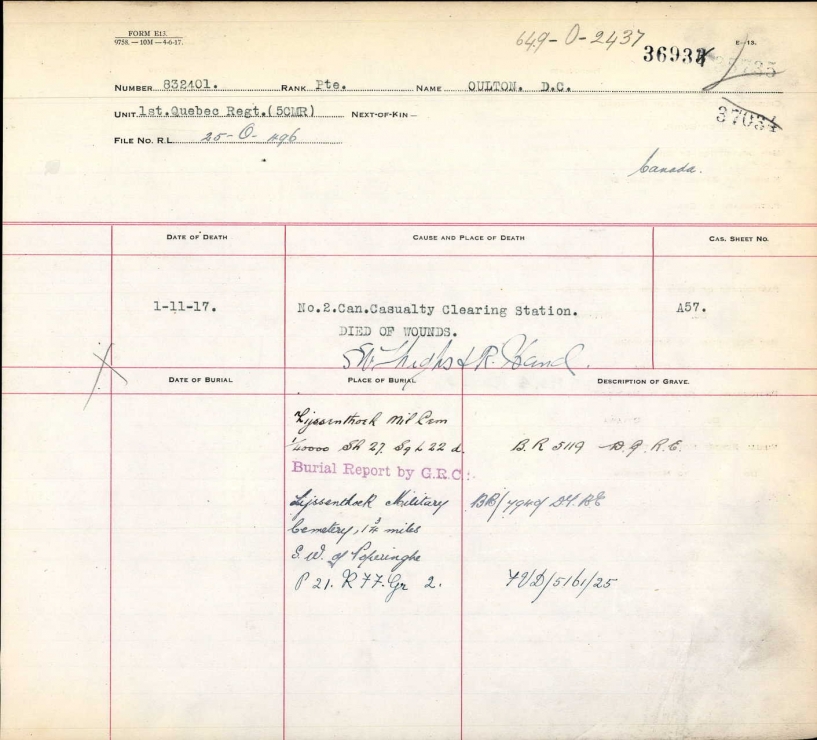 FORM E13.
9758.—10M—4-6-17.
649-O-2437
E-13.
NUMBER 832401. RANK Pte. NAME OULTON. D.C.
UNIT 1st.Quebec Regt.(5CMR) NEXT-OF-KIN—
37034
FILE No. R.L. 25-O-496
Canada.
DATE OF DEATH
CAUSE AND PLACE OF DEATH
CAS. SHEET No.
1-11-17.
No.2.Can.Casualty Clearing Station.
A57.
DIED OF WOUNDS.
SW Thighs & R. Hand.
DATE OF BURIAL
PLACE OF BURIAL
DESCRIPTION OF GRAVE.
Lijssenthoek Mil Cem
1/40000 Sh 27. Sq L 22 d.
B.R 5119 D.G.R.E.
Burial Report by G.R.C:-
Lijssenthoek Military
Cemetery, 1¾ miles
S.W. of Poperinghe
P 21. R FF. Gr 2.